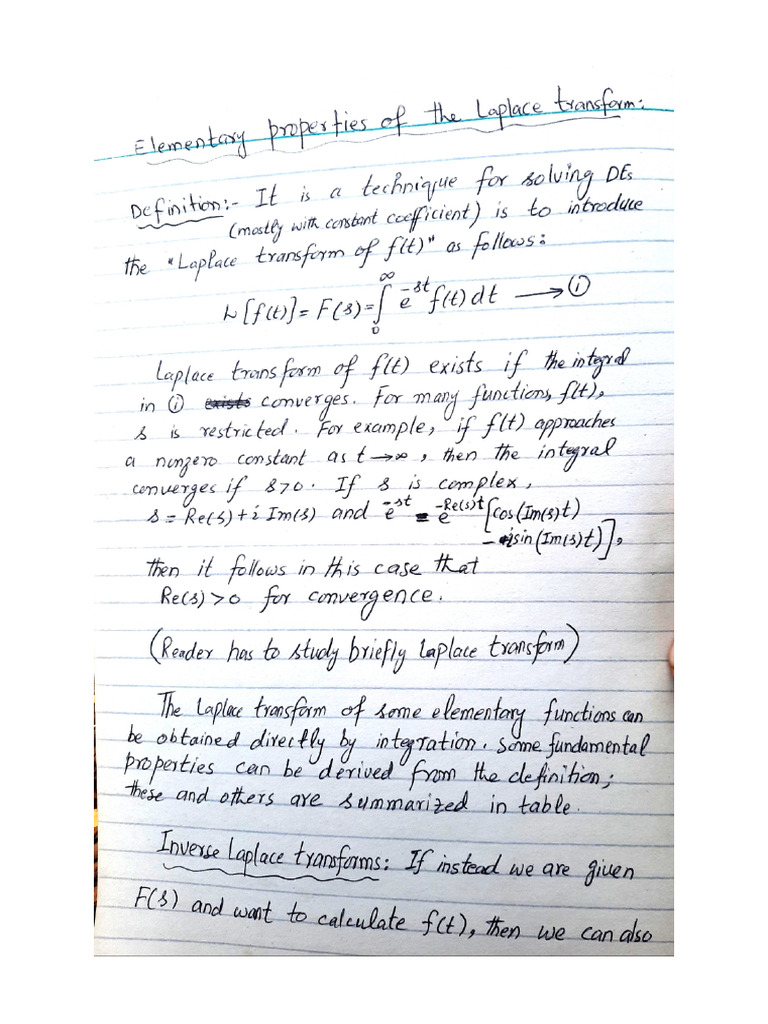 Elementary properties of the Laplace transform:
Definition:- It is a technique for solving DEs
(mostly with constant coefficient) is to introduce
the "Laplace transform of f(t)" as follows:
L[f(t)] = F(s) = ∫₀^∞ e^{-st} f(t) dt → ①
Laplace transform of f(t) exists if the integral
in ① exists converges. For many functions, f(t),
s is restricted. For example, if f(t) approaches
a nonzero constant as t→∞, then the integral
converges if s>0. If s is complex,
s = Re(s) + i Im(s) and e^{-st} = e^{-Re(s)t} [cos(Im(s)t)
- i sin(Im(s)t)],
then it follows in this case that
Re(s) > 0 for convergence.
(Reader has to study briefly Laplace transform)
The Laplace transform of some elementary functions can
be obtained directly by integration. Some fundamental
properties can be derived from the definition;
these and others are summarized in table.
Inverse Laplace transforms: If instead we are given
F(s) and want to calculate f(t), then we can also